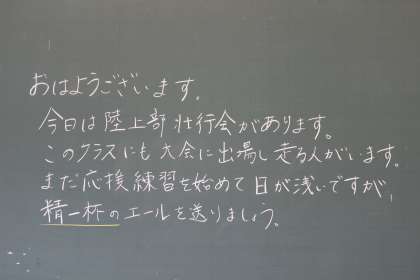 おはようございます。
今日は陸上部壮行会があります。
このクラスにも大会に出場し走る人がいます。
まだ応援練習を始めて日が浅いですが、
精一杯のエールを送りましょう。